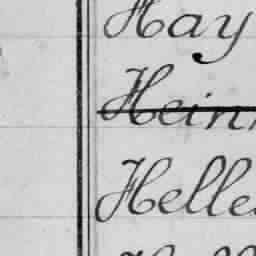 Hay
Hein
Helle